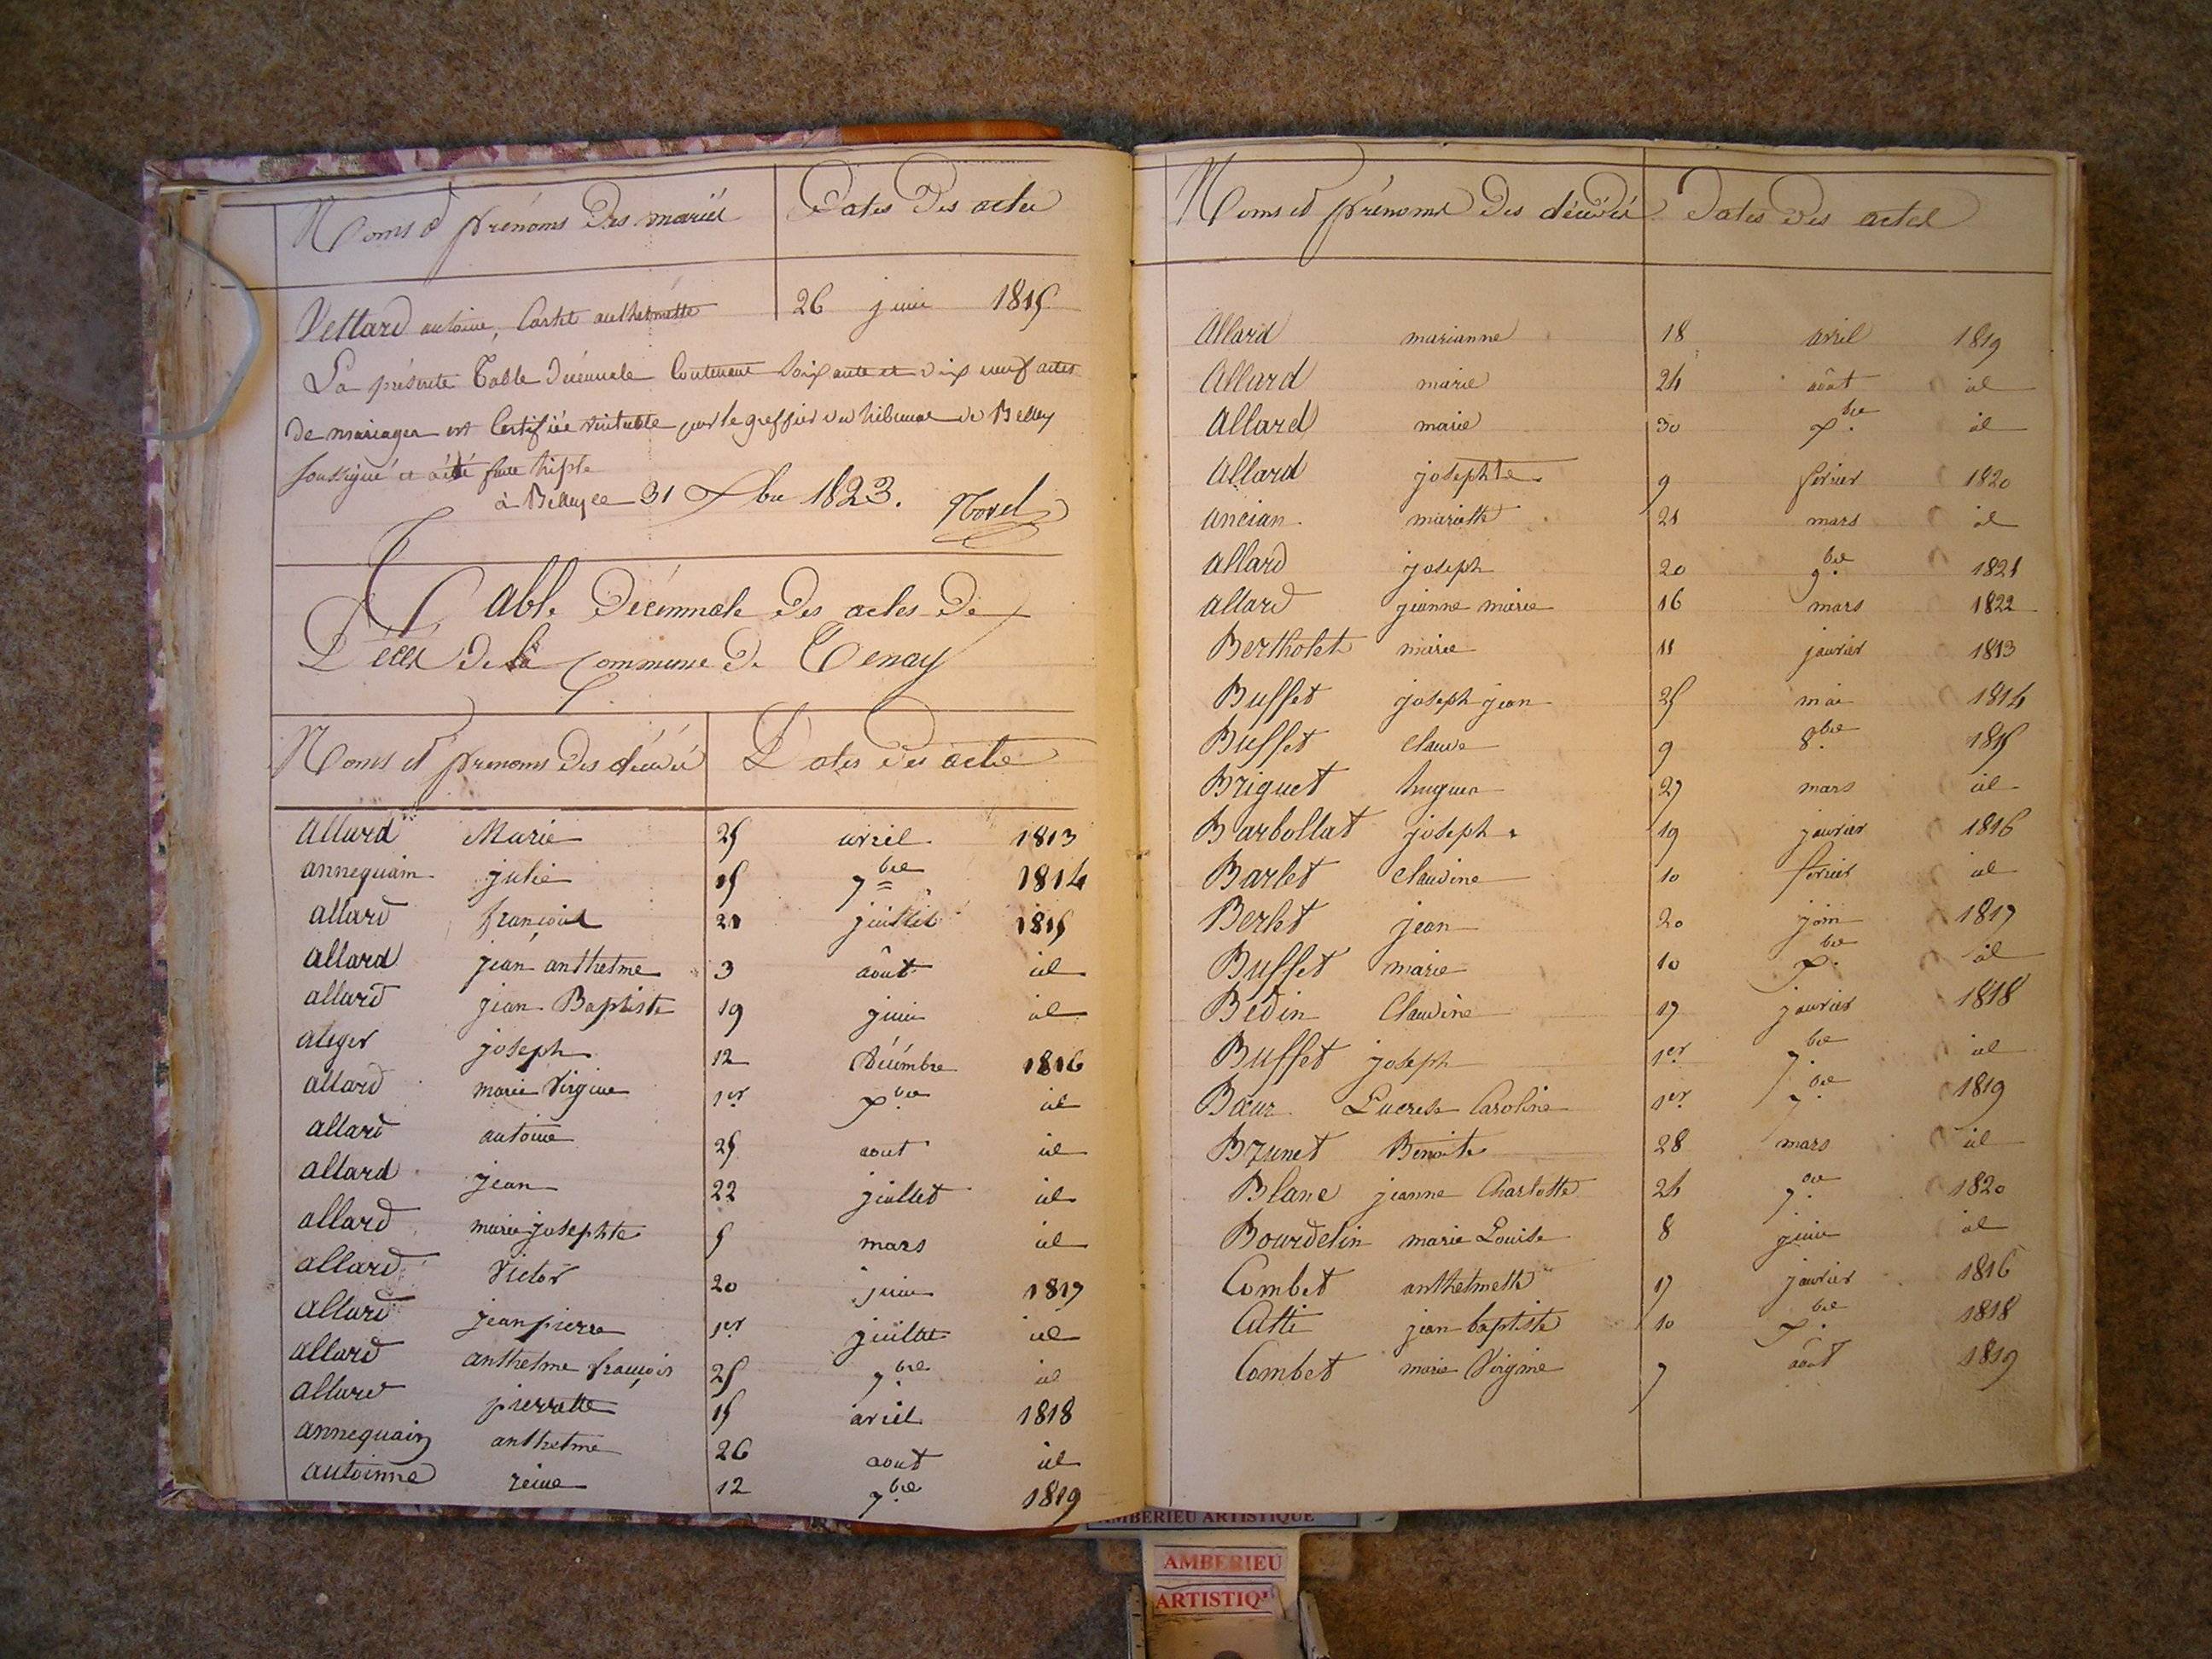 Noms et prénoms des mariés Dates des actes
Vettard antoine, Cartet anthelmette 26 juin 1815
La présente Table décennale Contenant Soixante et dix neuf actes
de mariages est Certifiée véritable par le greffier du tribunal de Belley
soussigné et a été faite triple
à Belley le 31 Xbre 1823.
Table Décennale des actes de
Décès de la Commune de Tenay
Noms et prénoms des décédés Dates des actes
allard Marie 25 avril 1813
annequain julie 15 7bre 1814
allard françois 21 juillet 1815
allard jean anthelme 3 août id
allard jean Baptiste 19 juin id
aleger joseph 12 Décémbre 1816
allard marie Virginie 1er Xbre id
allard antoine 25 aout id
allard jean 22 juillet id
allard marie josephte 5 mars id
allard Victor 20 juin 1817
allard jean pierre 1er juillet id
allard anthelme françois 25 7bre id
allard pierrette 15 avril 1818
annequain anthelme 26 aout id
antoinne reine 12 7bre 1819
Noms et prénoms des décédés Dates des actes
Allard marianne 18 avril 1819
Allard marie 24 août id
Allard marie 30 Xbre id
Allard josephte 9 février 1820
ancian mariette 21 mars id
allard joseph 20 9bre 1821
allard jeanne marie 16 mars 1822
Bertholet marie 11 janvier 1813
Buffet joseph jean 25 mai 1814
Buffet Claude 9 8bre 1815
Briguet hugues 27 mars id
Barbollat joseph 19 janvier 1816
Barlet Claudine 10 février id
Berlet jean 20 join 1817
Buffet marie 10 Xbre id
Bedin Claudine 17 janvier 1818
Buffet joseph 1er 7bre id
Bœur Lucrese Caroline 1er 7bre 1819
Brunet Benoite 28 mars id
Blanc jeanne Charlotte 24 7bre 1820
Bourdelin marie Louise 8 juin id
Combet anthelmette 17 janvier 1816
Cutti jean baptiste 10 Xbre 1818
Combet marie Virginie 7 août 1819
AMBERIEU ARTISTIQUE
AMBERIEU
ARTISTIQ